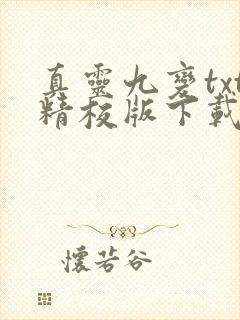 真靈九變txt
精校版下載
懷若谷